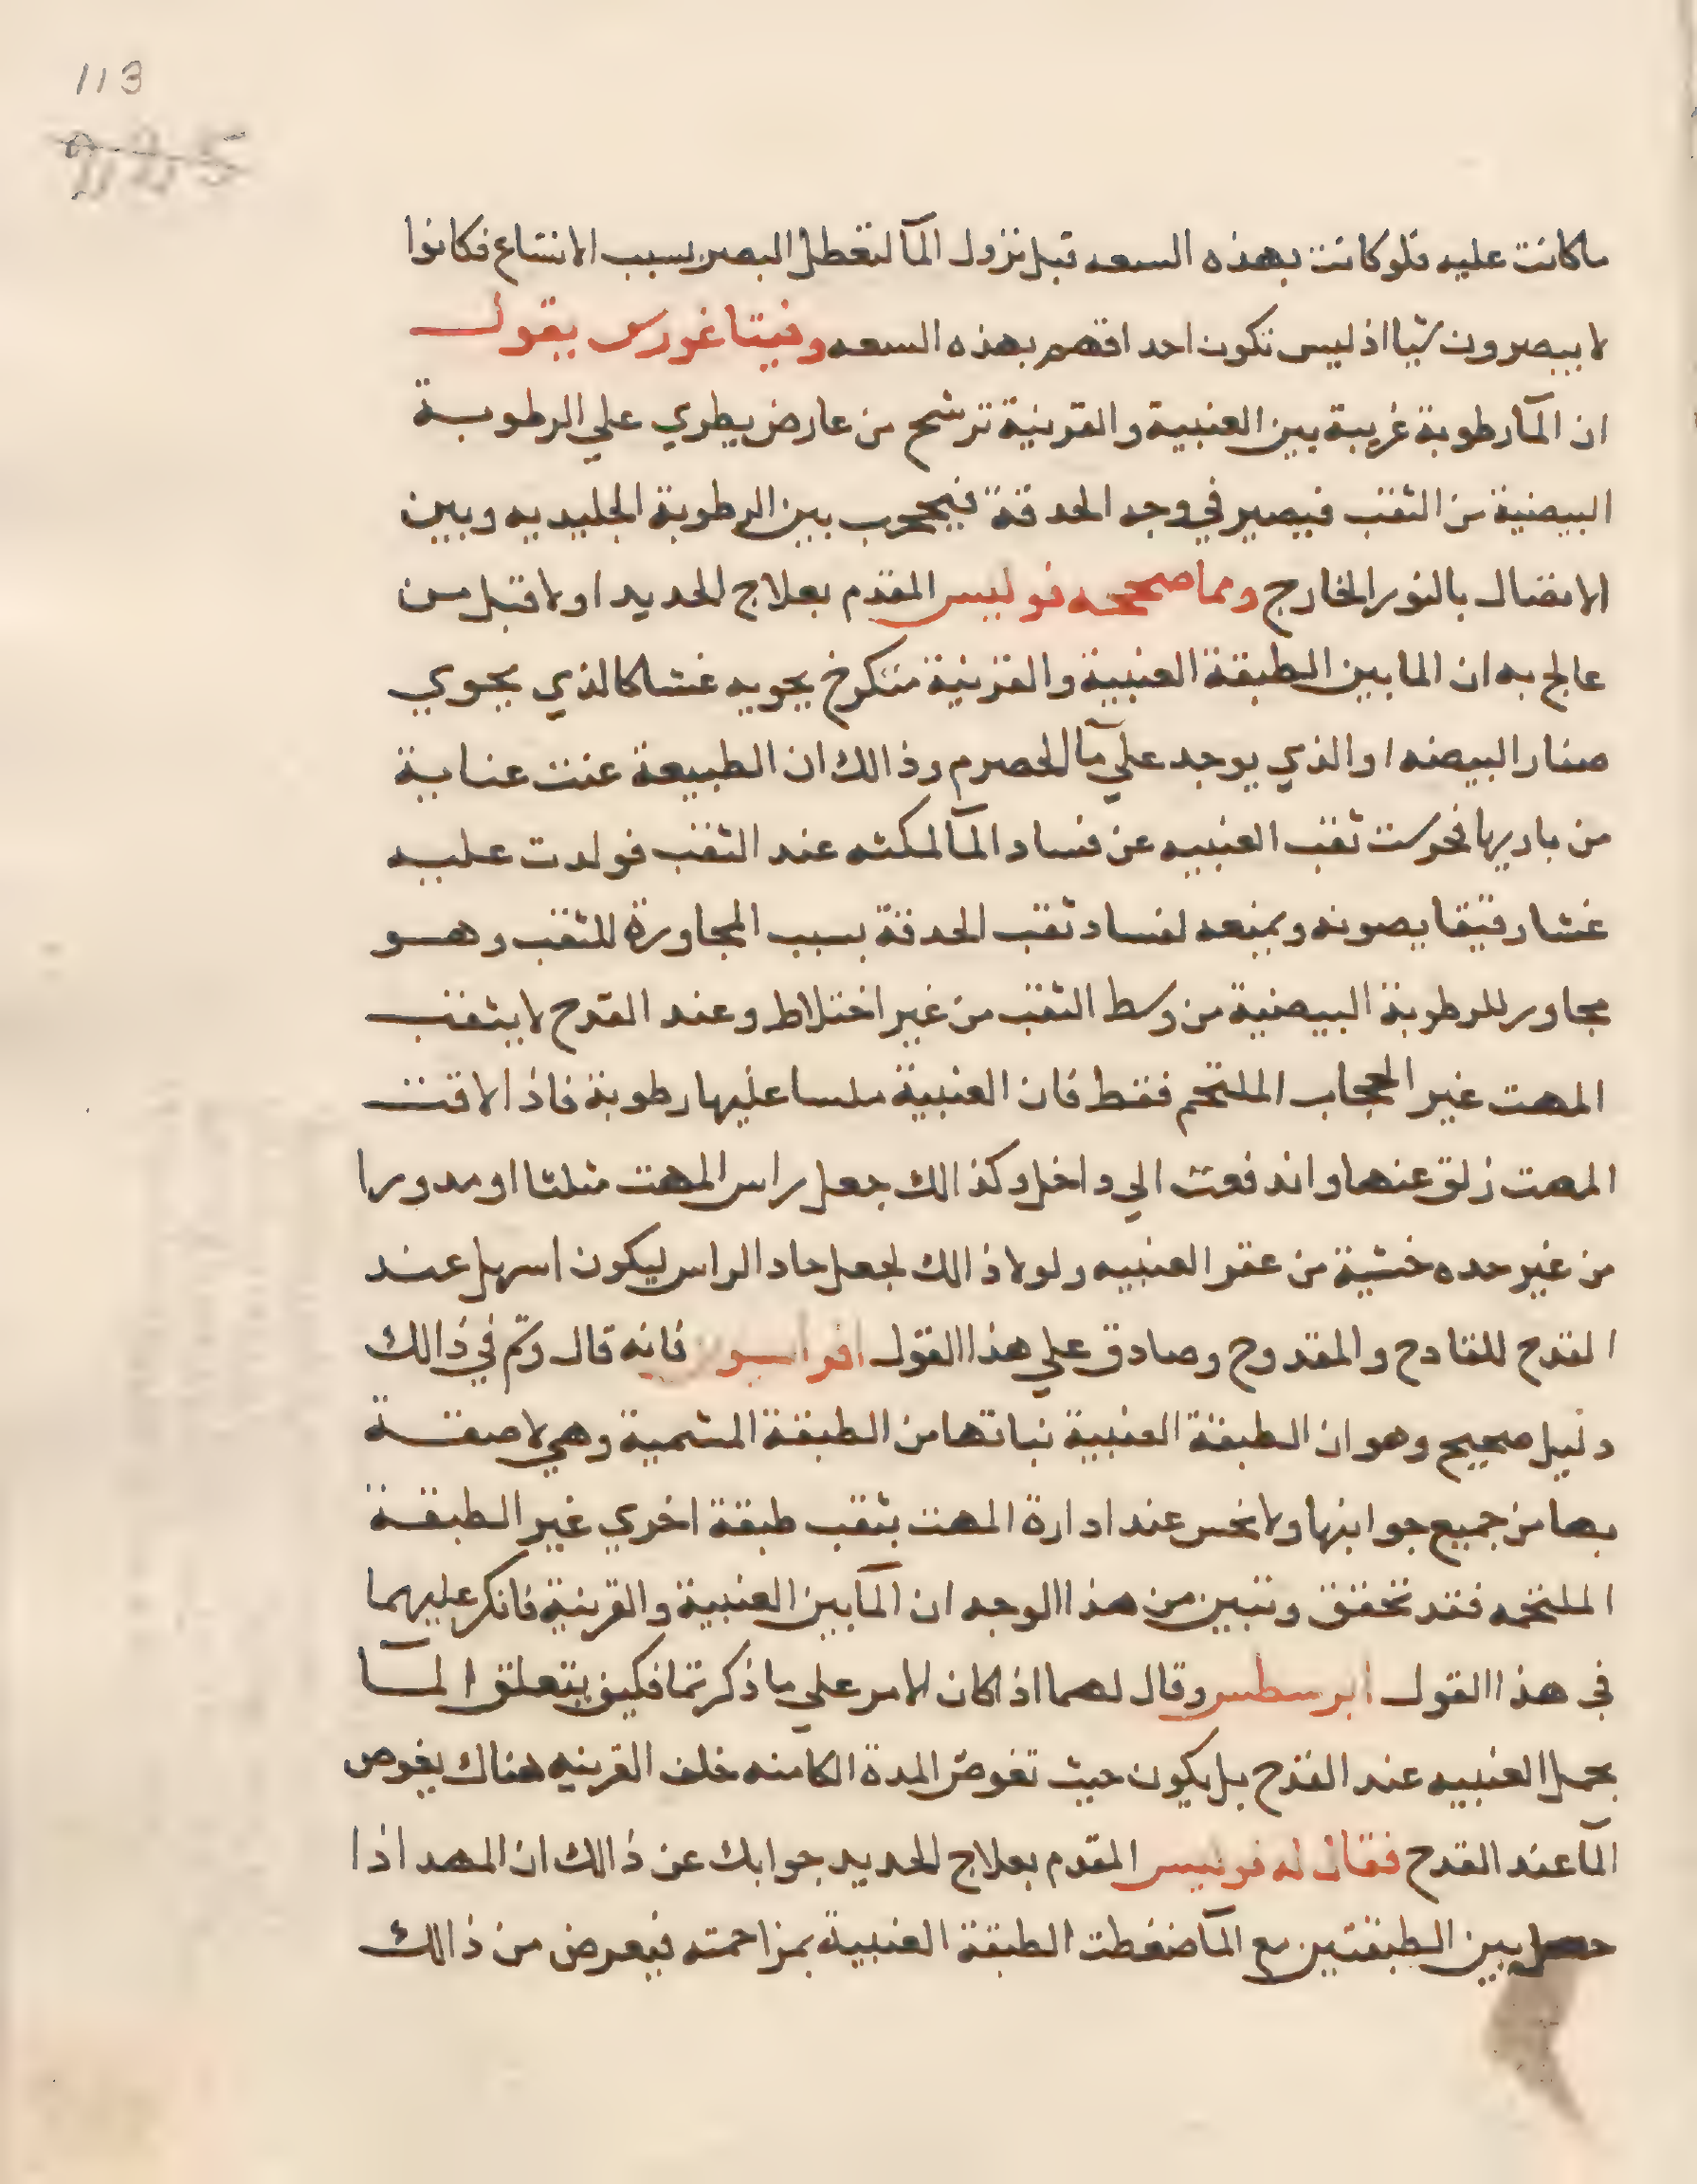 113
ما كانت عليه فلو كانت بهذه السعه قبل نزول المآ لتعطل البصر بسبب الاتساع فكانوا
لا يبصرون شيا اذ ليس تكون احداقهم بهذه السعه وفيتاغورس يقول
ان المآ رطوبة غريبة بين العنبية والقرنية ترشح من عارض يطري علي الرطوبة
البيضية من الثقب فيصير في وجه الحدقة فيحجب بين الرطوبة الجليديه وبين
الاتصال بالنور الخارج ومما صححه فوليس المقدم بعلاج الحديد اولا قبل من
عالج به ان الما بين الطبقة العنبية والقرنية متكرخ يحويه غشا كالذي يحوي
صفار البيضه او الذي يوجد علي مآ الحصرم وذالك ان الطبيعة عنت عناية
من باريها فحرست ثقب العنبيه عن فساد المآ لمكثه عند الثقب فولدت عليه
غشا رقيقا يصونه ويمنعه لفساد ثقب الحدقة بسبب المجاورة للثقب وهو
مجاور للرطوبة البيضية من وسط الثقب من غير اختلاط وعند القدح لا يثقب
المهت غير الحجاب الملتحم فقط فان العنبية ملسا عليها رطوبة فاذا لاقت
المهت زلق عنها واندفعت الي داخل وكذالك جعل راس المهت مثلثا او مدورا
من غير حده خشية من عقر العنبيه ولولا ذالك لجعل حاد الراس ليكون اسهل عند
القدح للقادح والمقدوح وصادق علي هذا القول فانه قال وثم في ذالك
دليل صحيح وهو ان الطبقة العنبية نباتها من الطبقة المشمية وهي لاصقة
بها من جميع جوانبها ولا نحس عند ادارة المهت بثقب طبقة اخري غير الطبقة
الملتحمه فقد تحقق وتبين من هذا الوجه ان المآ بين العنبية والقرنية فانكر عليهما
في هذا القول ابرسطس وقال لهما اذا كان الامر علي ما ذكرتما فكيف يتعلق المآ
بحمل العنبيه عند القدح بل يكون حيث تغوص المدة الكامنه خلف القرنيه هناك يغوص
المآ عند القدح فقال له فوليس المقدم بعلاج الحديد جوابك عن ذالك ان المهد اذا
حصل بين الطبقتين مع المآ ضغطت الطبقة العنبية بمزاحمته فيعرض من ذالك